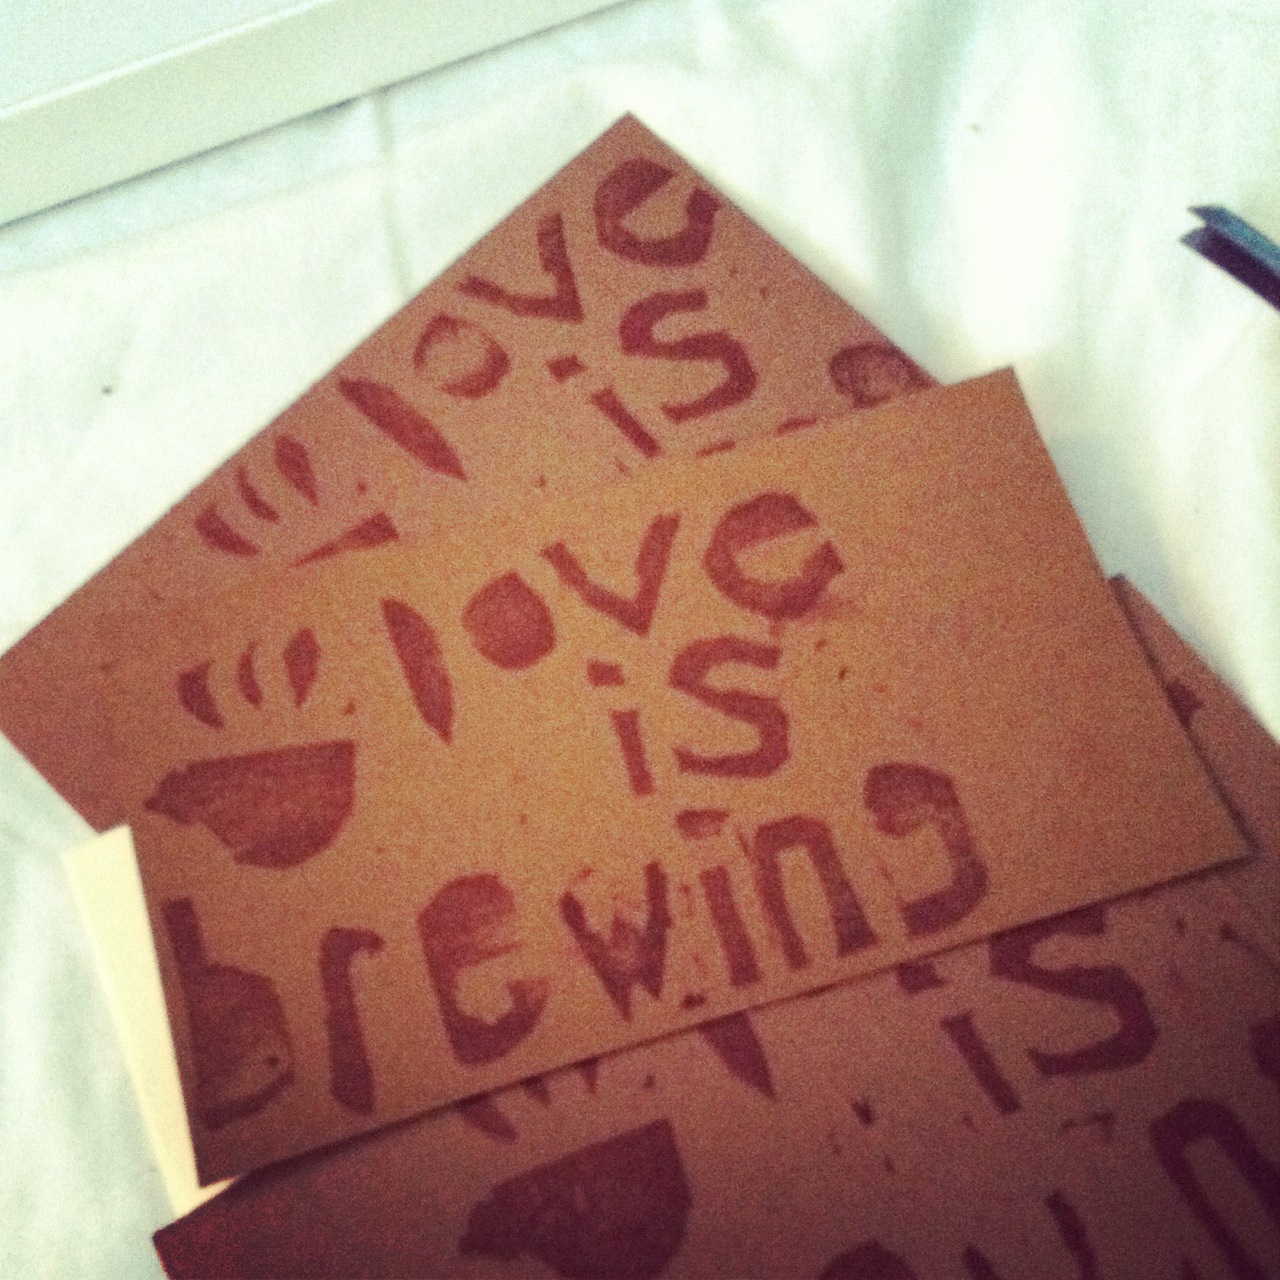 love
is
love
is
brewing
is